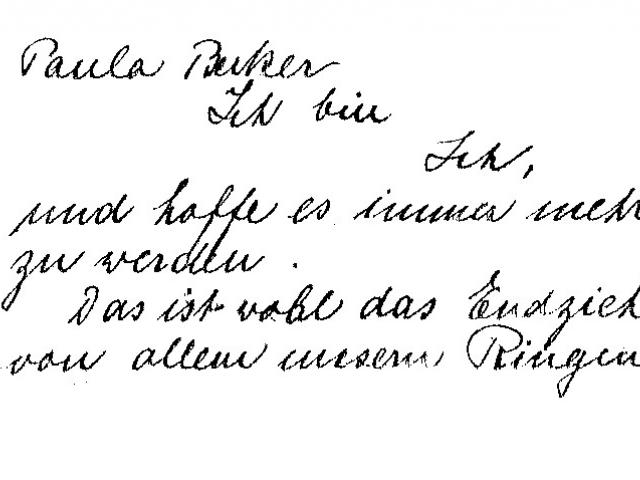 Paula Becker
Ich bin
Ich,
und hoffe es immer mehr
zu werden.
Das ist wohl das Endziel
von allem unserm Ringen